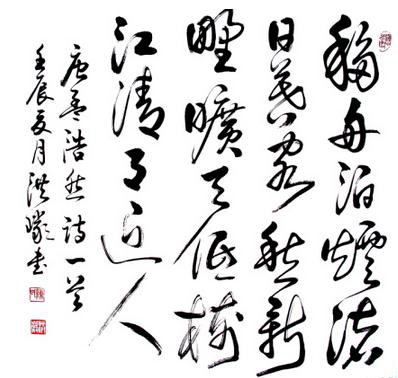 移舟泊煙渚
日暮客愁新
野曠天低樹
江清月近人
唐孟浩然詩一首
壬辰夏月洪書